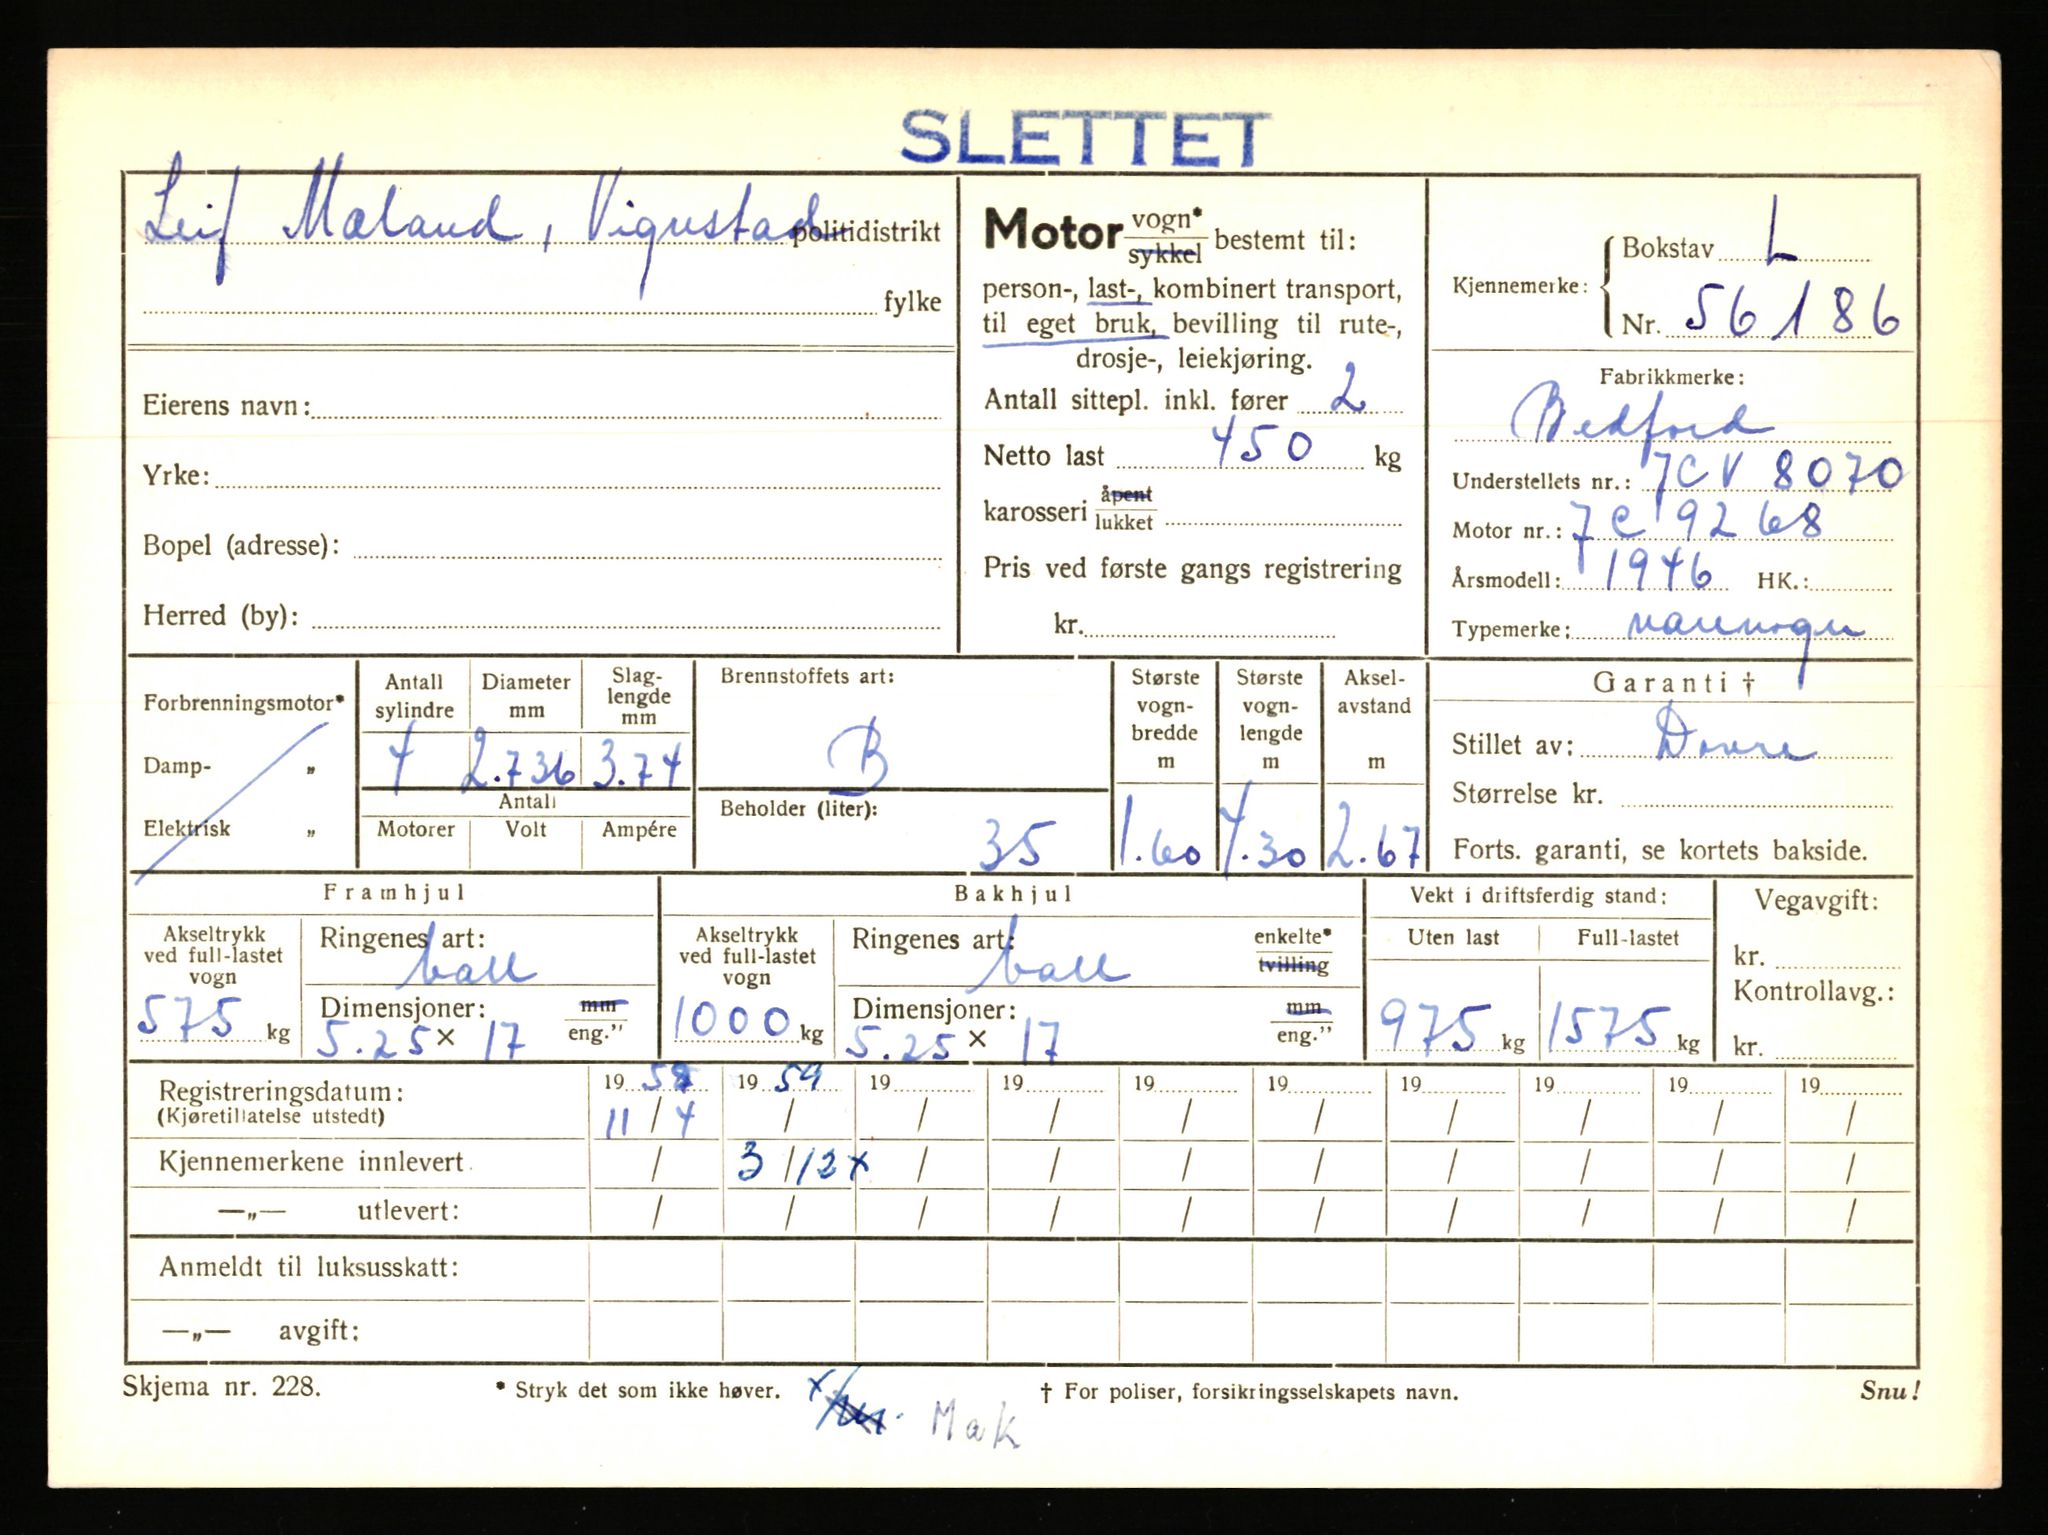 SLETTET
Leif Mæland, Vigrestad politidistrikt
fylke
Eierens navn:
Yrke:
Bopel (adresse):
Herred (by):
Motor vogn* sykkel bestemt til:
person-, last-, kombinert transport,
til eget bruk, bevilling til rute-,
drosje-, leiekjøring.
Antall sittepl. inkl. fører 2
Netto last 450 kg
karosseri åpent lukket
Pris ved første gangs registrering
kr.
Kjennemerke: Bokstav L
Nr. 56186
Fabrikkmerke:
Bedford
Understellets nr.: 7CV 8070
Motor nr.: 7C 9268
Årsmodell: 1946 HK.:
Typemerke: varevogn
Forbrenningsmotor*
Damp- „
Elektrisk „
Antall sylindre Diameter mm Slag-lengde mm
4 2.736 3.74
Antall
Motorer Volt Ampére
Brennstoffets art:
B
Beholder (liter):
35
Største vogn-bredde m
1.60
Største vogn-lengde m
4.30
Aksel-avstand m
2.67
Garanti †
Stillet av: Dovre
Størrelse kr.
Forts. garanti, se kortets bakside.
Framhjul
Akseltrykk ved full-lastet vogn
575 kg
Ringenes art:
ball
Dimensjoner: mm
5.25 x 17 eng.”
Bakhjul
Akseltrykk ved full-lastet vogn
1000 kg
Ringenes art: enkelte* tvilling
ball
Dimensjoner: mm
5.25 x 17 eng.”
Vekt i driftsferdig stand:
Uten last Full-lastet
975 kg 1575 kg
Vegavgift:
kr.
Kontrollavg.:
kr.
Registreringsdatum: 1958 1959 19 19 19 19 19 19 19 19
(Kjøretillatelse utstedt) 11/4 / / / / / / / / /
Kjennemerkene innlevert / 3/12x / / / / / / / /
—„— utlevert: / / / / / / / / / /
Anmeldt til luksusskatt:
—„— avgift:
Skjema nr. 228. * Stryk det som ikke høver. † For poliser, forsikringsselskapets navn. Snu!
x Mak